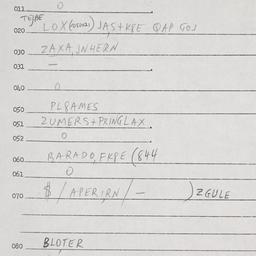 011 0
TEJBE
020 LOX (OSUUZI) JAS+KPE QAP GOJ
030 ZAXA, JNHERN
031 —
040 0
050 PLPAMES
051 ZUMERS+PXINGLAX
052 0
060 BARADO, FKPE (844
061 0
070 $ / APER, RN / — ) ZGULE
080 BLOTER